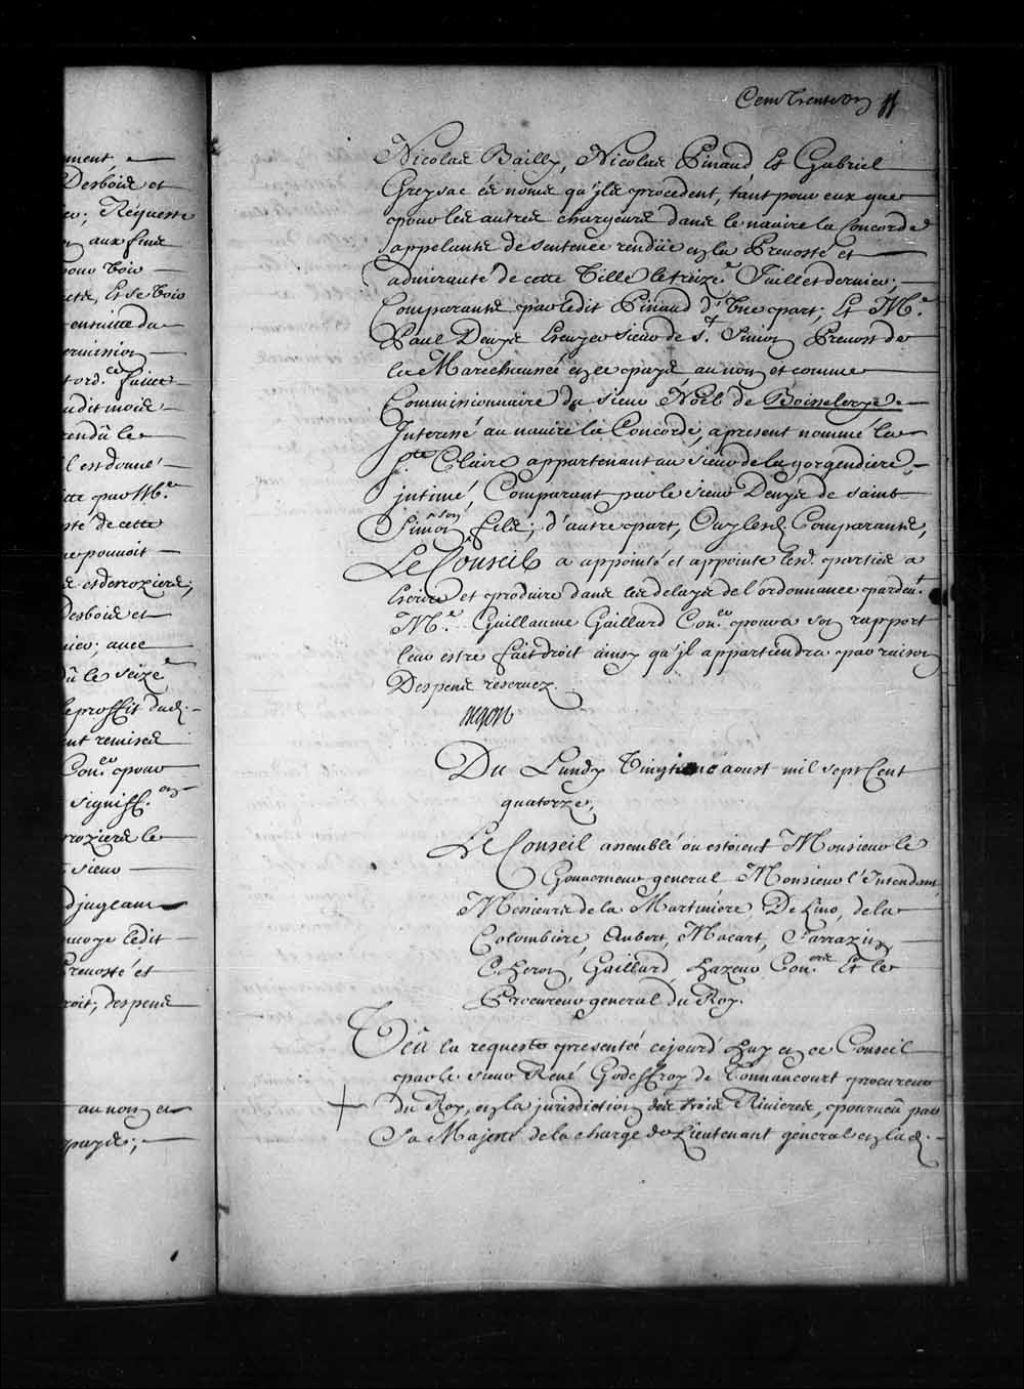 ment
Desbois et
Requeste
aux fins
pour Voir
Et se Voir
ensuitte du
ermission
ord.ce faitte
udit mois
rendu le
il est donné
par M.e
sté de cette
ne pouvoit
s et derroziers;
Desbois et
avec
du le seize.e
le proffit dud.
nt remises
Con.er pour
signiff.on
rroziers le
sieur
D jugeant
envoye ledit
Prevosté et
roit; despens
au nom et
payis;
Cent Trente un
Nicolas Bailly, Nicolas Pinaud Et Gabriel
Greysac és noms qu'jls procedent, tant pour eux que
pour les autres chargeurs dans le navire la Concorde
appelants de sentence rendüe en la Prevosté et
admirauté de cette Ville le treize.e Juillet dernier,
Comparants par ledit Pinaud d'Une part; Et M.e
Paul Denys Escuyer sieur de S.t Simon Prevost de
la Marechaussée en ce pays, au nom et comme
Commissionnaire du sieur Noël de Boisseleryé.
Interessé au navire la Concorde, a present nommé la
S.te Claire appartenant au sieur de la gorgendiere,
jntimé, Comparant par le sieur Denys de saint
Simon, son fils; d'autre part, Ouy lesd. Comparants,
Le Conseil a appointé et appointe lesd. parties a
Escrire et produire dans les delays de l'ordonnance pardev.t
M.e Guillaume Gaillard Con.er pour a son rapport
leur estre fait droit ainsy qu'jl appartiendra par raison
Despens reservez.
Begon
Du Lundy Vingtiéme aoust mil sept Cent
quatorze,
Le Conseil assemblé ou estoient Monsieur le
Gouverneur general Monsieur l'Intendant,
Messieurs de la Martiniere, De Lino, de la
Colombiere, Aubert, Macart, Sarrazin,
Cheron, Gaillard, hazeur Con.ers Et le
Procureur general du Roy.
Veû la requeste presentée cejourd'huy en ce Conseil
par le sieur René Godeffroy de Tonnancourt procureur
du Roy, en la jurisdiction des trois Rivieres, pourveu par
Sa Majesté de la charge de Lieutenant general en lad.